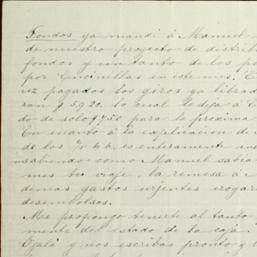 Fondos ya mandé á Manuel
de nuestro proyecto de distrib
fondos y un tanto de los p
por Cencinillas en este mes. E
vez pagados los giros ya librad
ran $5920. lo cual le deja á C
do de solo para la proxima
En cuanto á la esplicacion de
de los es enteramente in
sabiendo como Manuel sabia
mes tu viaje, la remesa á
demas gastos urjentes erogar
desembolsos.
Me propongo tenerte al tanto
mente del estado de la caja.
Ojalá y nos escribas pronto y